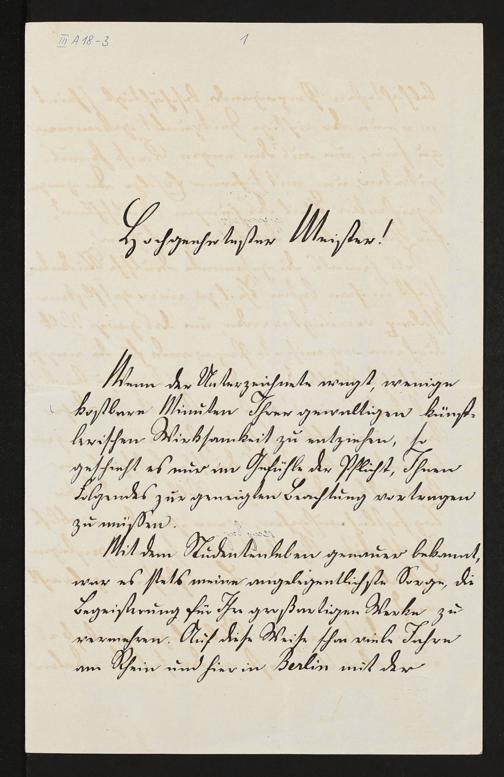 III A 18-3
1
Hochgeehrtester Meister!
Wenn der Unterzeichnete wagt, wenige
kostbare Minuten Ihrer gewaltigen künst-
lerischen Wirksamkeit zu entziehen, so
geschieht es nur im Gefühle der Pflicht, Ihnen
Folgendes zur geneigten Beachtung vortragen
zu müssen.
Mit dem Studentenleben genauer bekannt,
war es stets meine angelegentlichste Sorge, die
Begeisterung für Ihre großartigen Werke zu
vermehren. Auf diese Weise schon viele Jahre
am Rhein und hier in Berlin mit der